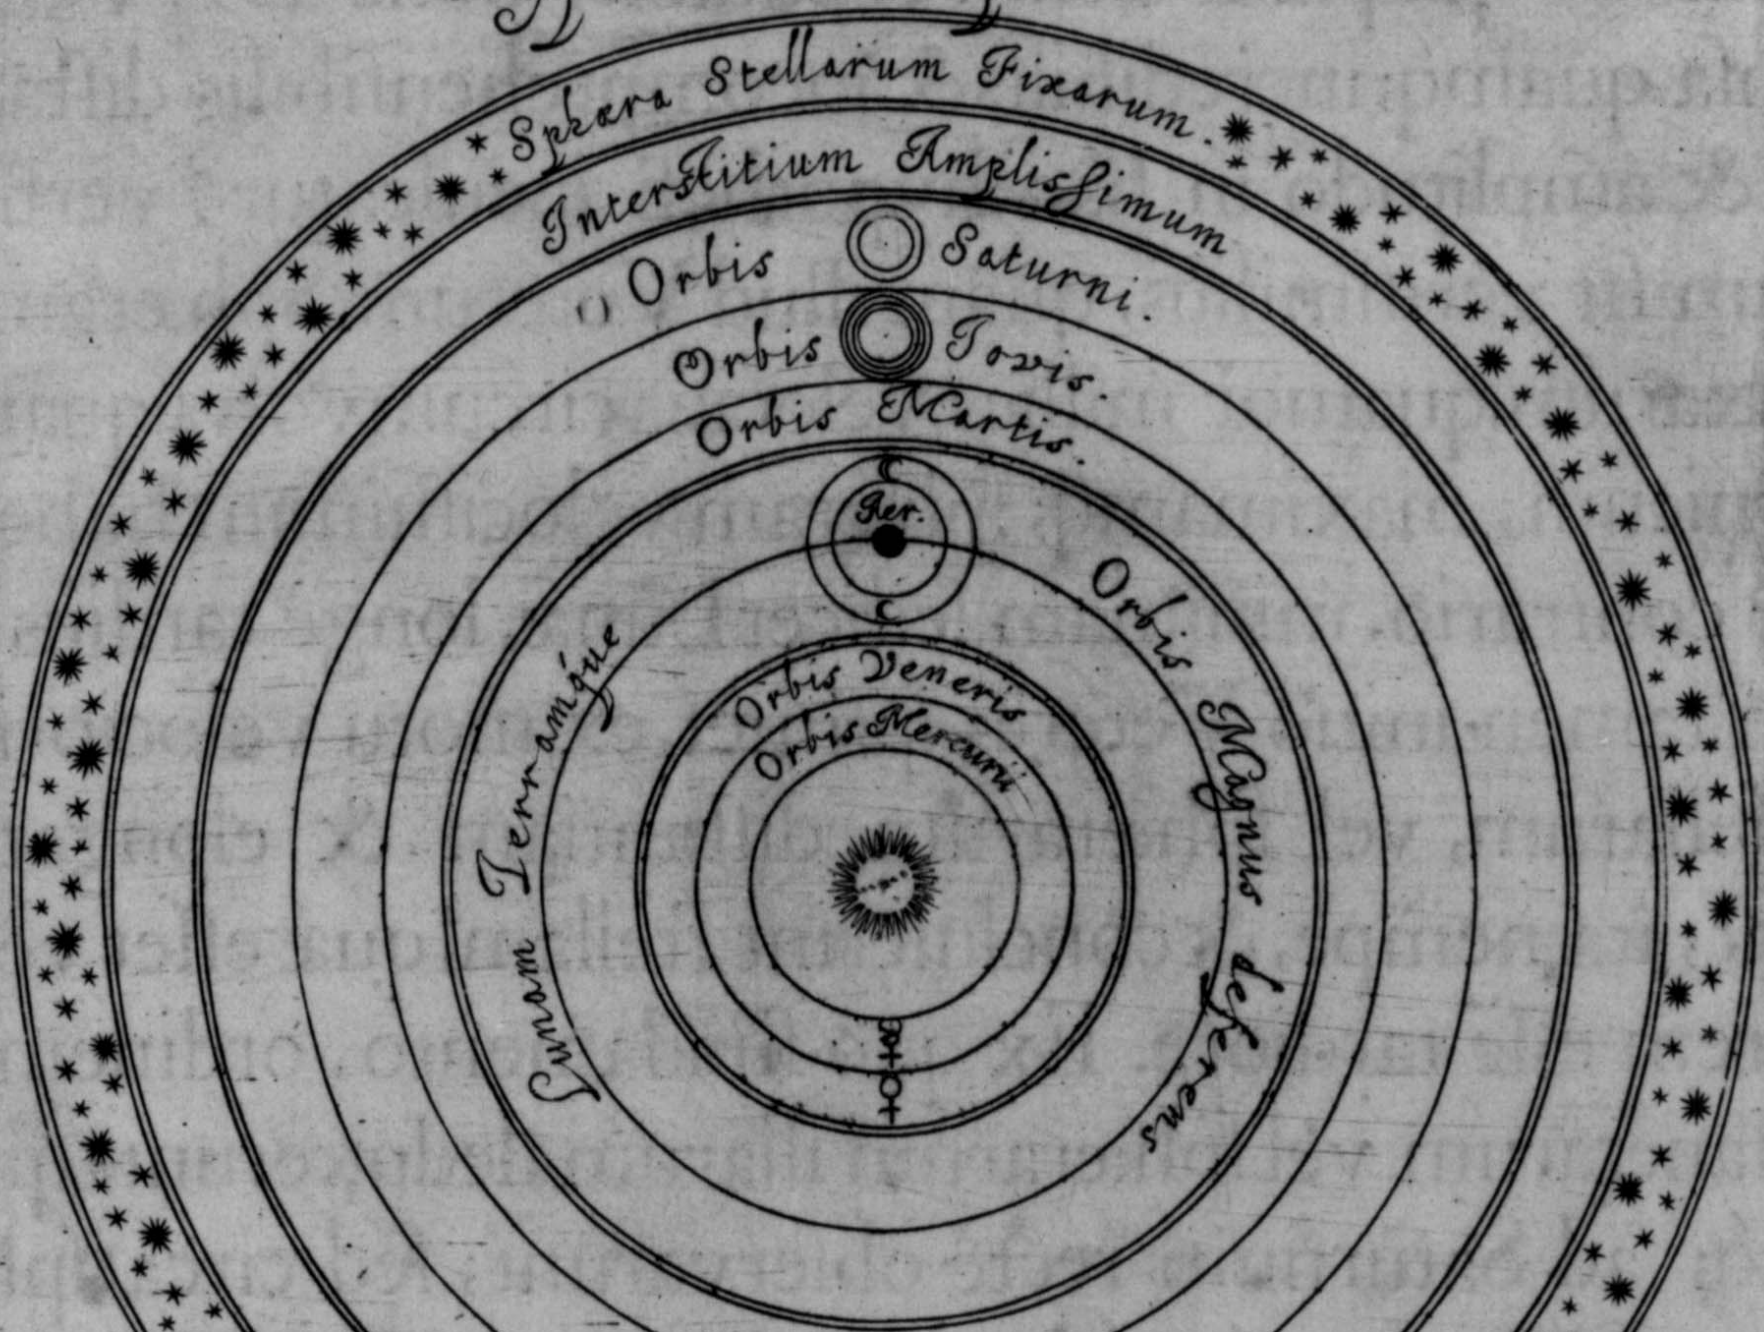 Sphæra Stellarum Fixarum.
Interstitium Amplissimum
Orbis Saturni.
Orbis Jovis.
Orbis Martis.
☾
Aer.
☾
Orbis Magnus deferens
Lunam Terramque
Orbis Veneris
Orbis Mercurii
☿
♀